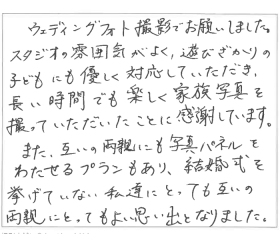 ウェディングフォト撮影でお願いしました。
スタジオの雰囲気がよく、遊びざかりの
子どもにも優しく対応していただき、
長い時間でも楽しく家族写真を
撮っていただいたことに感謝しています。
また、互いの両親にも写真パネルを
わたせるプランもあり、結婚式を
挙げていない私達にとっても互いの
両親にとってもよい思い出となりました。